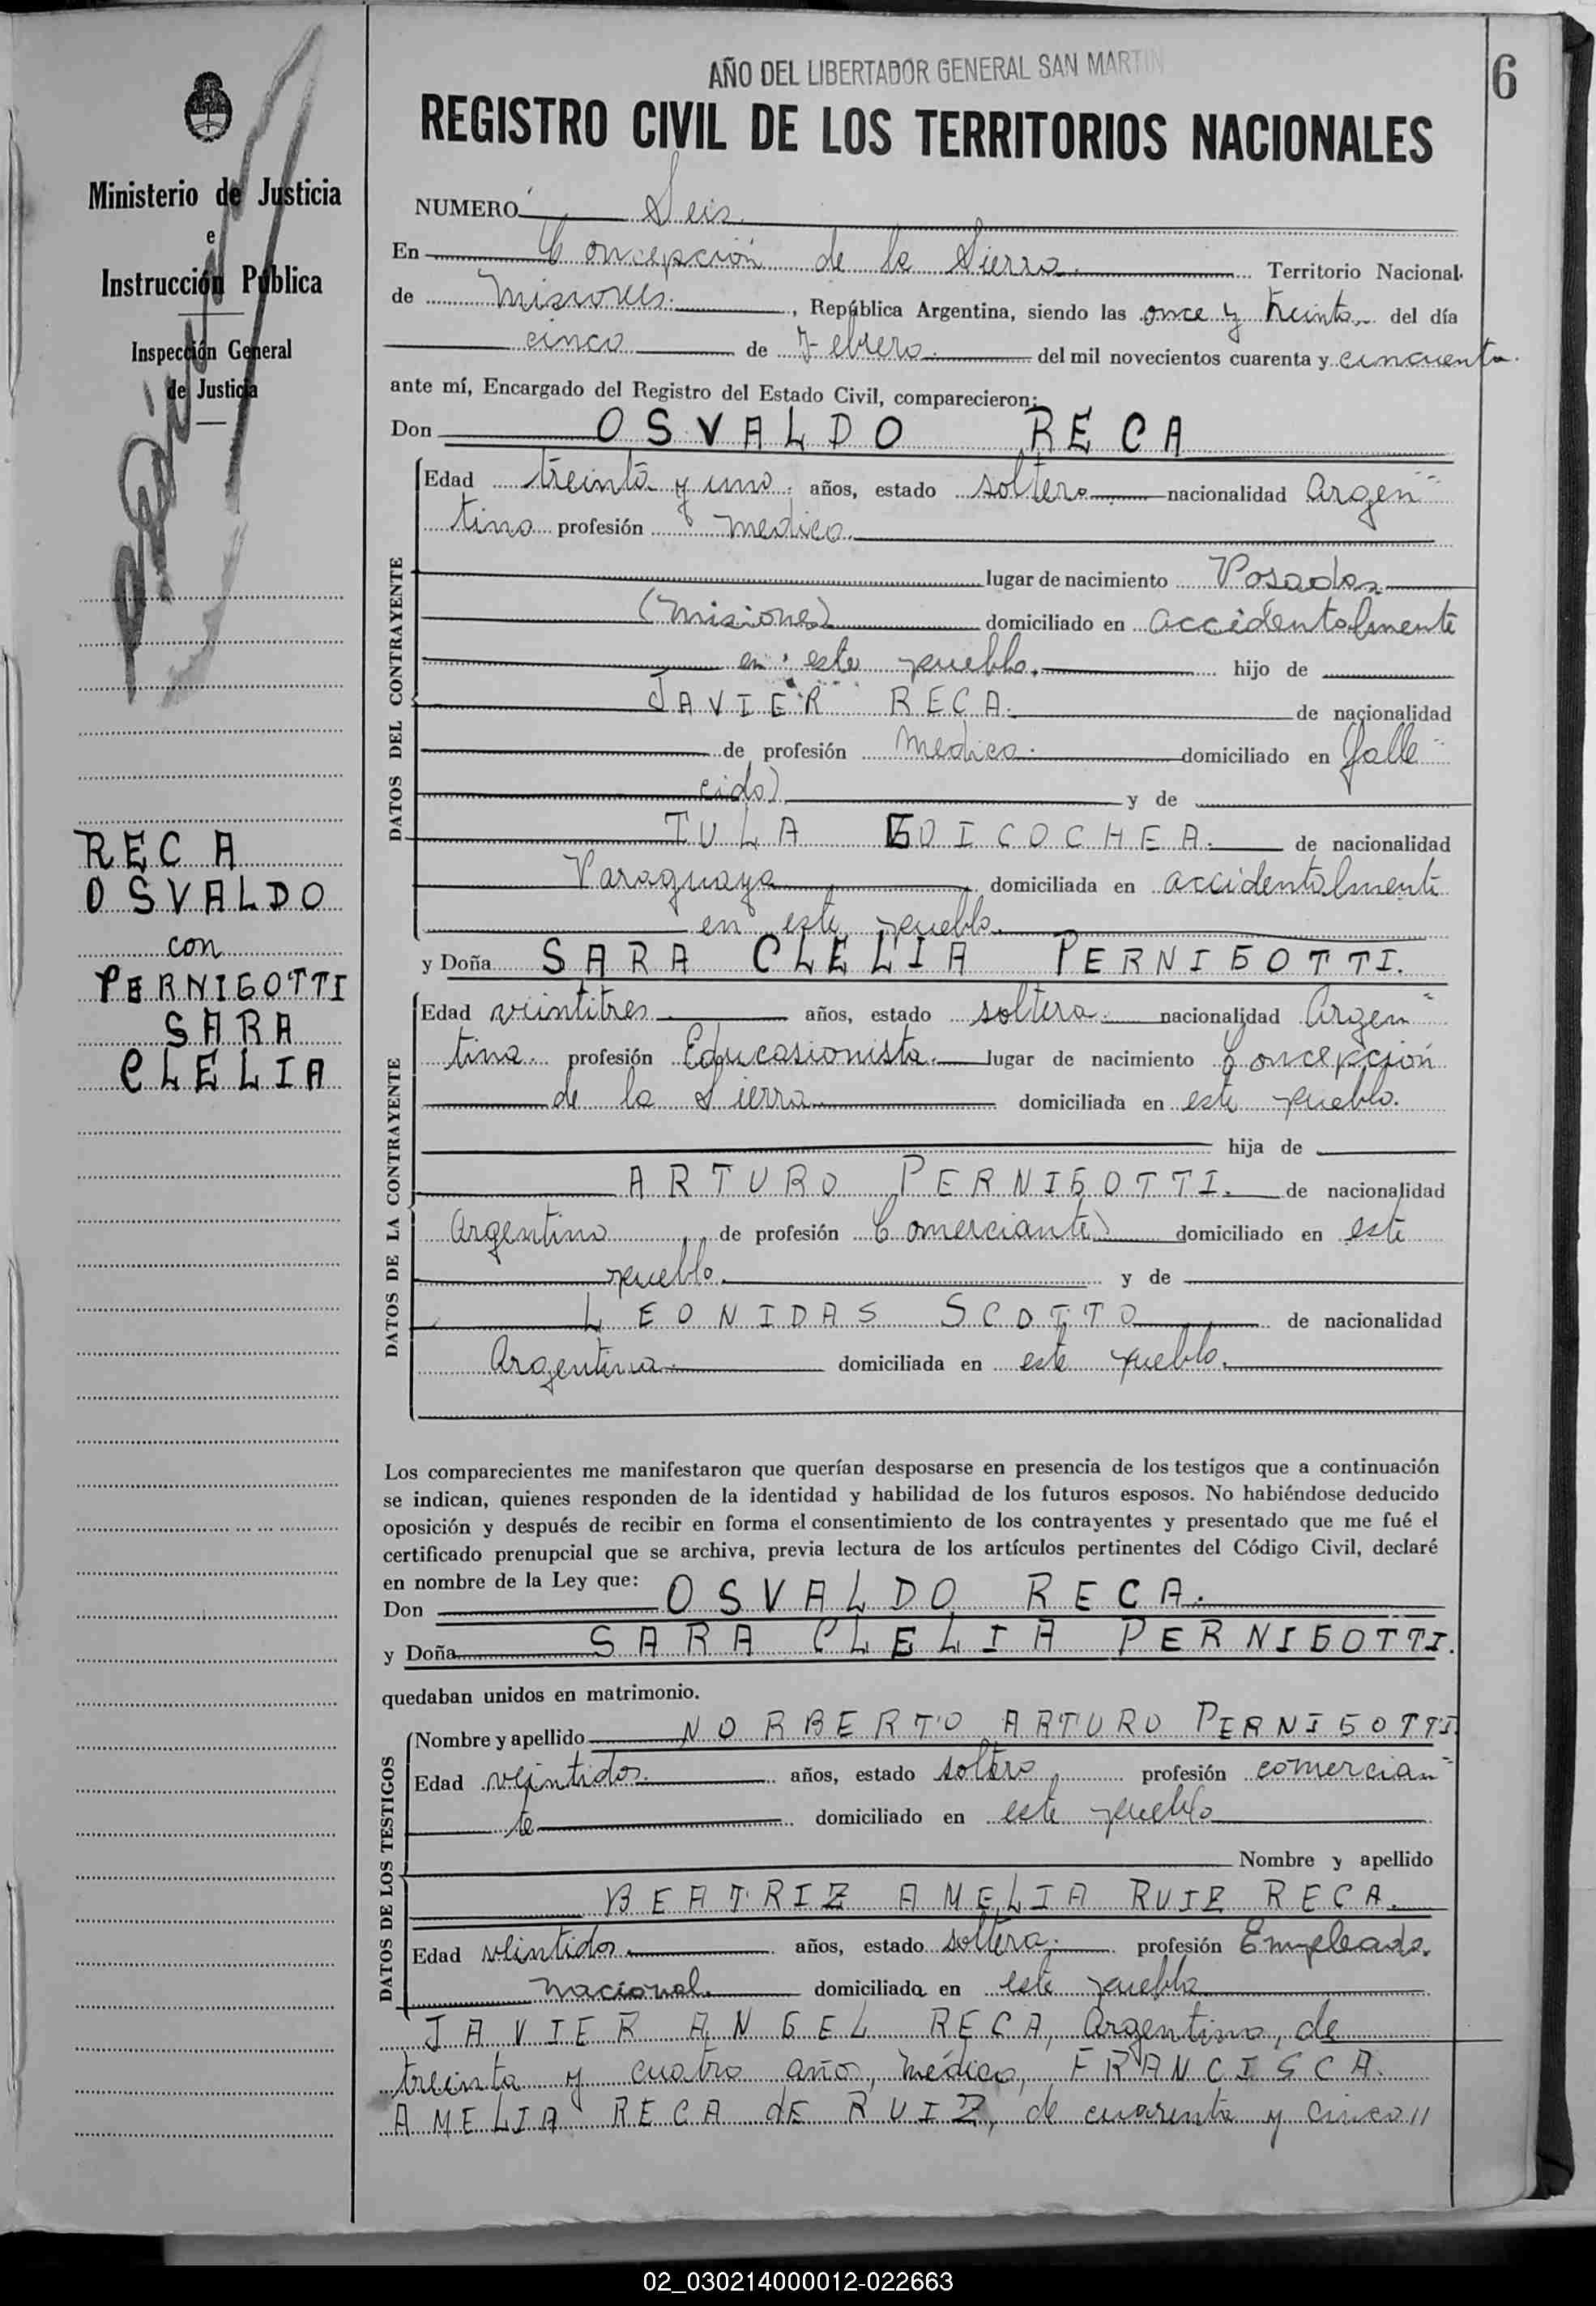 AÑO DEL LIBERTADOR GENERAL SAN MARTIN
6
REGISTRO CIVIL DE LOS TERRITORIOS NACIONALES
Ministerio de Justicia
e
Instrucción Pública
Inspección General
de Justicia
RECA
OSVALDO
con
PERNIGOTTI
SARA
CLELIA
NUMERO Seis.
En Concepción de la Sierra. Territorio Nacional
de Misiones. , República Argentina, siendo las once y treinta del día
cinco de Febrero. del mil novecientos cuarenta y cincuenta.
ante mí, Encargado del Registro del Estado Civil, comparecieron:
Don OSVALDO RECA
DATOS DEL CONTRAYENTE
Edad treinta y uno. años, estado soltero nacionalidad Argen=
tino profesión medico.
lugar de nacimiento Posadas
(Misiones) domiciliado en accidentalmente
en este pueblo. hijo de
JAVIER RECA. de nacionalidad
de profesión Medico. domiciliado en (falle=
cido) y de
TULA GOICOCHEA. de nacionalidad
Paraguaya domiciliada en accidentalmente
en este pueblo.
y Doña SARA CLELIA PERNIGOTTI.
DATOS DE LA CONTRAYENTE
Edad veintitres años, estado soltera. nacionalidad Argen=
tina. profesión Educasionista. lugar de nacimiento Concepción
de la Sierra domiciliada en este pueblo.
hija de
ARTURO PERNIGOTTI. de nacionalidad
Argentino , de profesión Comerciante domiciliado en este
pueblo. y de
LEONIDAS SCOTTO de nacionalidad
Argentina. domiciliada en este pueblo.
Los comparecientes me manifestaron que querían desposarse en presencia de los testigos que a continuación
se indican, quienes responden de la identidad y habilidad de los futuros esposos. No habiéndose deducido
oposición y después de recibir en forma el consentimiento de los contrayentes y presentado que me fué el
certificado prenupcial que se archiva, previa lectura de los artículos pertinentes del Código Civil, declaré
en nombre de la Ley que:
Don OSVALDO RECA.
y Doña SARA CLELIA PERNIGOTTI.
quedaban unidos en matrimonio.
DATOS DE LOS TESTIGOS
Nombre y apellido NORBERTO ARTURO PERNIGOTTI
Edad veintidos. años, estado soltero profesión comercian=
te domiciliado en este pueblo
Nombre y apellido
BEATRIZ AMELIA RUIZ RECA.
Edad veintidos. años, estado soltera. profesión Empleada.
nacional. domiciliada en este pueblo
JAVIER ANGEL RECA, Argentino, de
treinta y cuatro años, médico, FRANCISCA.
AMELIA RECA dE RUIZ, de cuarenta y cinco //
02_030214000012-022663